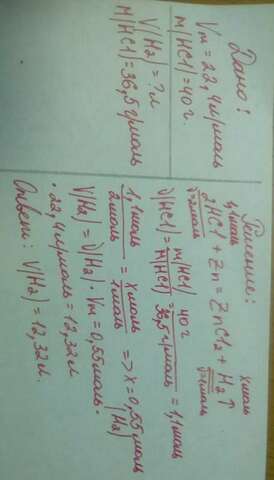 Дано:
Vm = 22,4 л/моль
m(HCl) = 40 г.
V(H₂) = ? л
M(HCl) = 36,5 г/моль
Решение:
1,1 моль x моль
2HCl + Zn = ZnCl₂ + H₂↑
ν=2моль ν=1моль
ν(HCl) = m(HCl) / M(HCl) = 40 г / 36,5 г/моль = 1,1 моль
1,1 моль / 2 моль = x моль / 1 моль => x = 0,55 моль (H₂)
V(H₂) = ν(H₂) · Vm = 0,55 моль ·
· 22,4 л/моль = 12,32 л
Ответ: V(H₂) = 12,32 л.